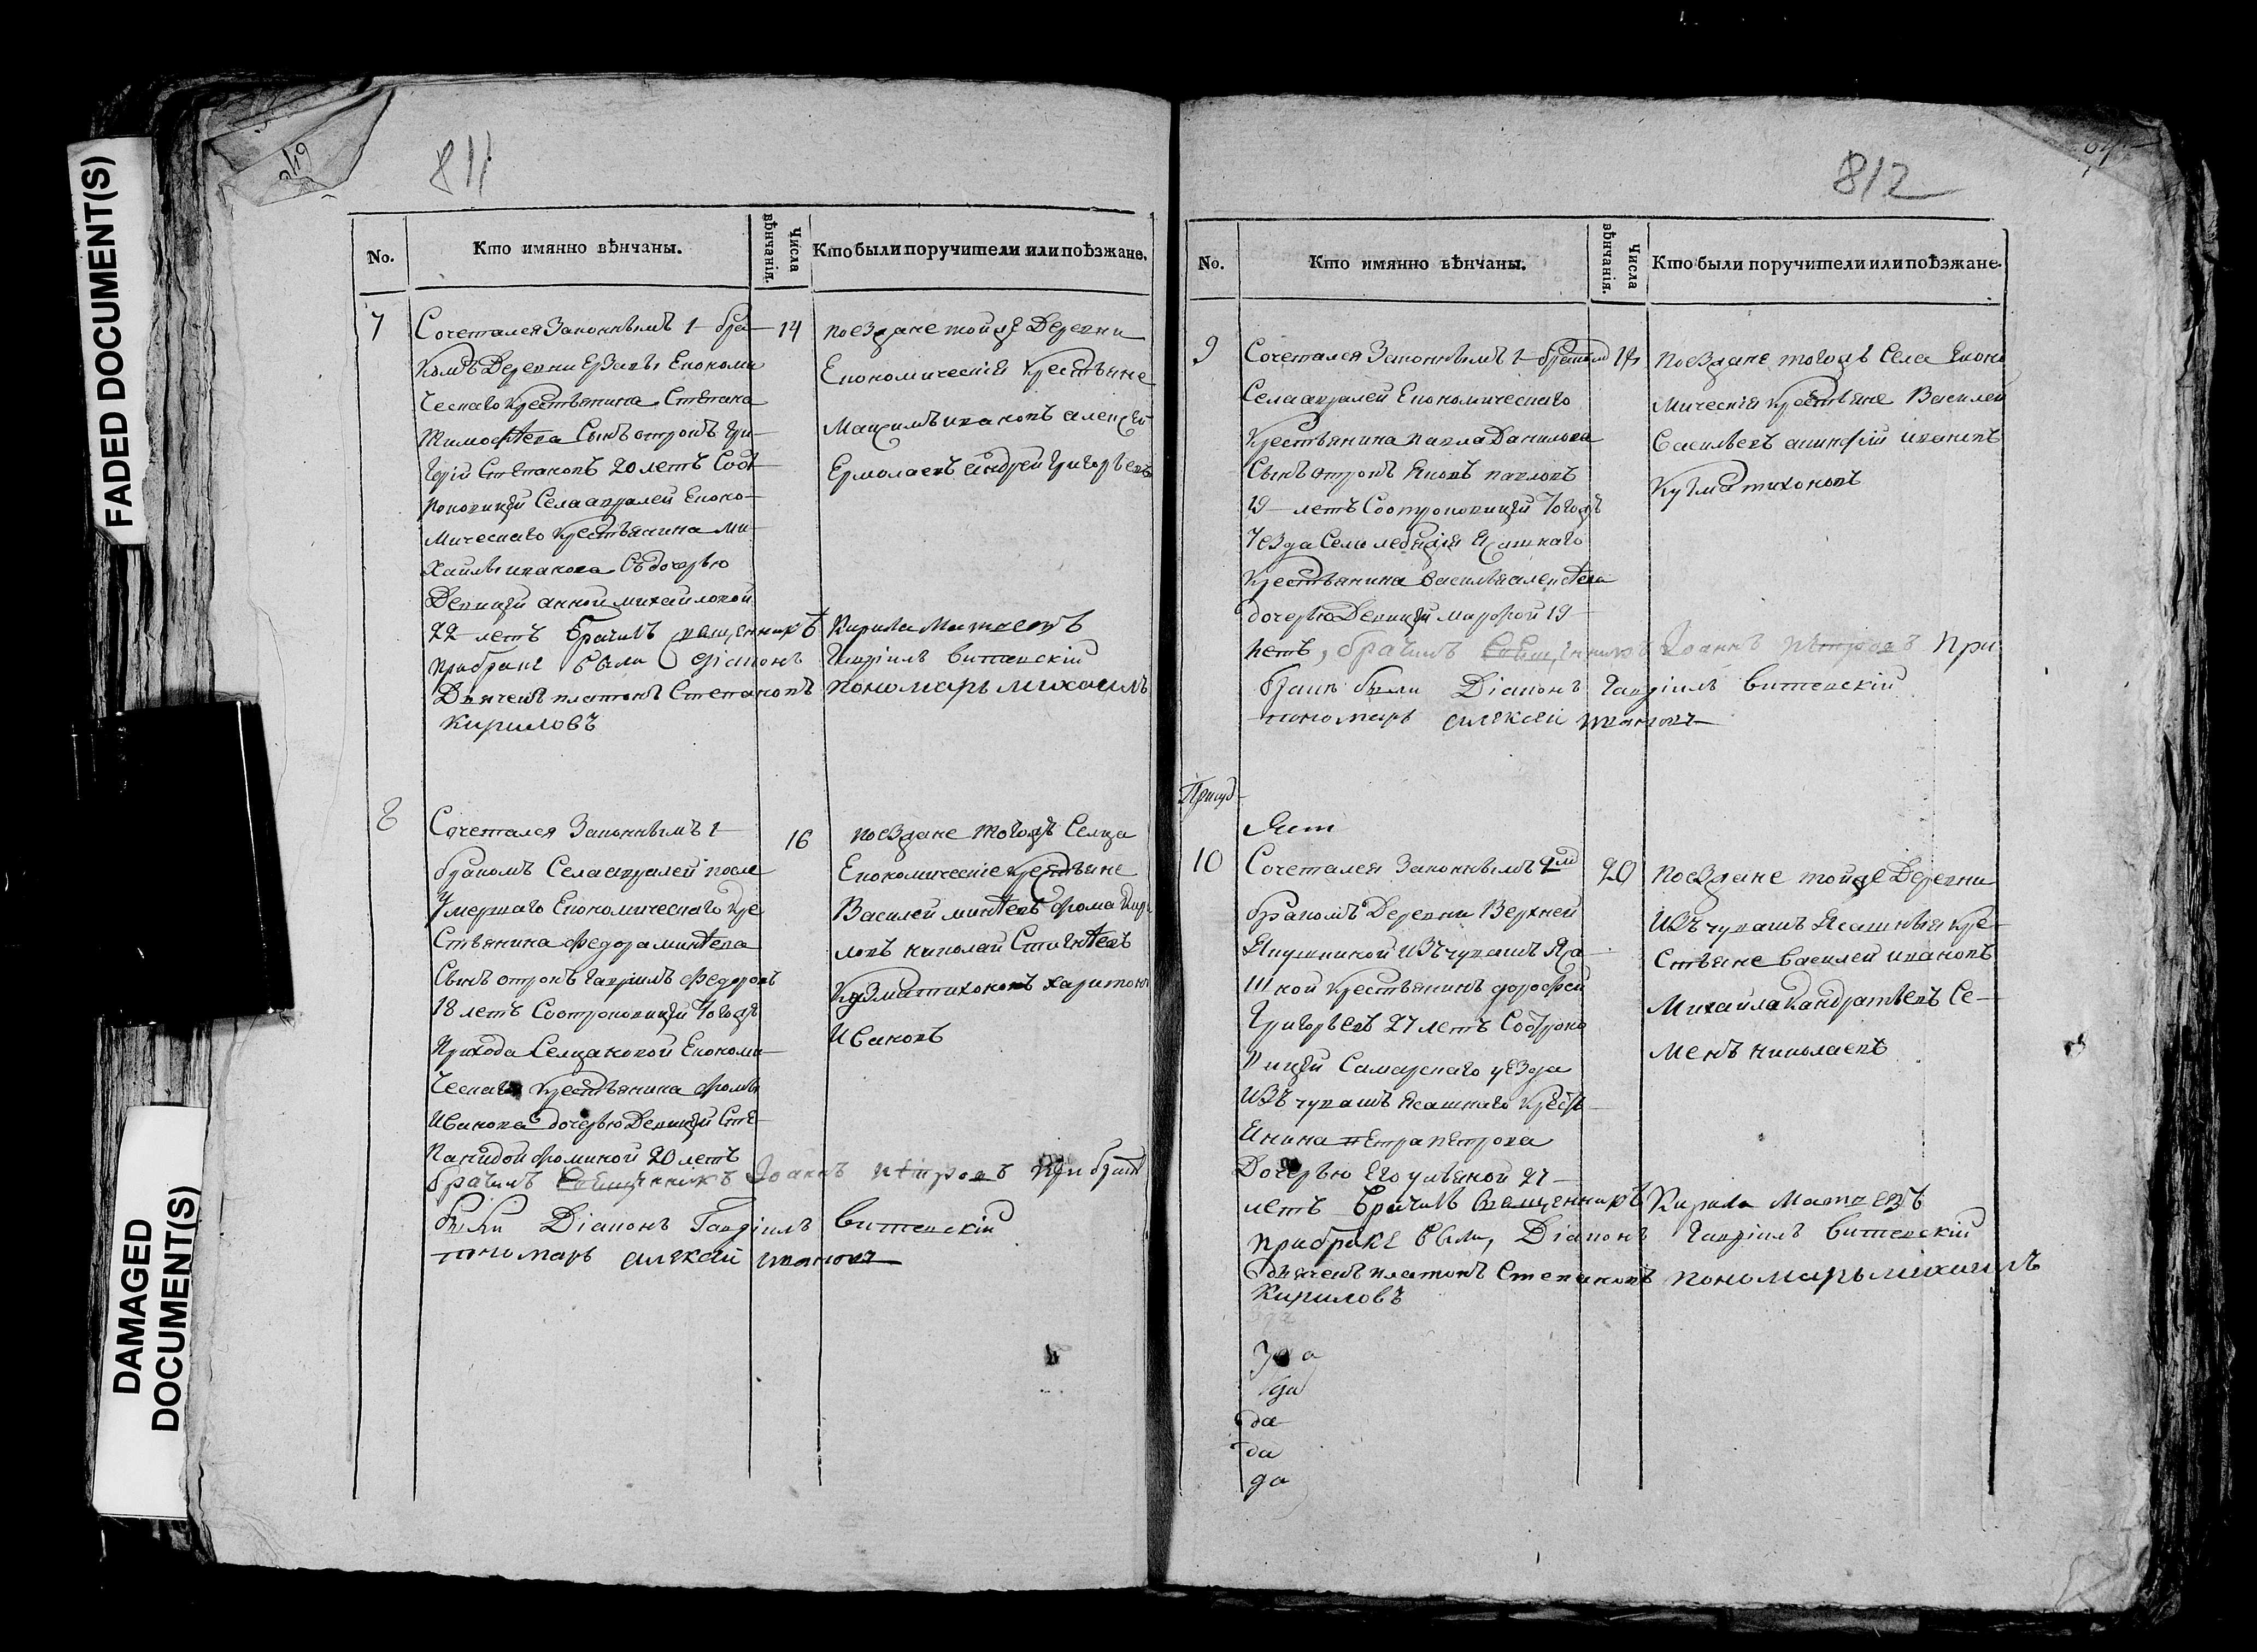 FADED DOCUMENT(S)
DAMAGED
DOCUMENT(S)
811
No.
Кто имянно вѣнчаны.
Числа
вѣнчанія.
Кто были поручители или поѣзжане.
7
Сочетался Законнымъ 1 бра
14
комъ Деревни Ерзавы Економи
ческаго крестьянина Степана
Тимофѣева Сынъ отрокъ Гри
горій Степановъ 20 летъ Сот
роковицей Села Економи
мическаго крестьянина ми
хайлы иванова Съдочерью
Девицей анной михайловой
22 летъ брачилъ священникъ Кирила Матвеевъ
прибраке были Діаконъ Гавріилъ Витевскій
Дьячекъ платонъ Степановъ пономарь михаилъ
Кириловъ
поезжане тойже Деревни
Економическія крестьяне
Максимъ ивановъ алексей
Ермолаевъ андрей григорьевъ
8
Сочетался Законнымъ 1
16
бракомъ Села после
умершаго Економическаго кре
стьянина Федора
Сынъ отрокъ гаврилъ Федоровъ
18 летъ Соотроковицей тогожъ
прихода Економи
ческаго крестьянина фомы
Иванова дочерью Девицей Сте
панидой фоминой 20 летъ
брачилъ Священникъ Іоаннъ петровъ при браке
были Діаконъ Гавріилъ Витевскій
пономарь алексей ивановъ
поезжане тогожъ Сельца
Економическіе крестьяне
Василей фома Кири
ловъ николай
Кузма тихоновъ харитонъ
Ивановъ
812
No.
Кто имянно вѣнчаны.
Числа
вѣнчанія.
Кто были поручители или поѣзжане.
9
Сочетался Законнымъ 1 бракомъ
14
Села Економическаго
Крестьянина павла Данилова
Сынъ отрокъ Яковъ павловъ
19 летъ Соотроковицей тогожъ
уезда Села ясашнаго
крестьянина василья алексѣева
дочерью Девицей марфой 19
летъ, брачилъ Священникъ Іоаннъ петровъ при
браке были Діаконъ Гавріилъ Витевскій
пономарь алексей ивановъ
поезжане тогожъ Села Еконо
мическія крестьяне Василей
Васильевъ ивановъ
Кузма тихоновъ
10
Сочетался Законнымъ
20
бракомъ Деревни Верхней
изъ чувашъ Яса
шной крестьянинъ дорофей
Григорьевъ 27 летъ Соотроко
вицей Самарскаго уезда
изъ чувашъ ясашнаго крестья
янина петра петрова
Дочерью Его ульяной 27
летъ брачилъ Священникъ Кирила Матвеевъ
прибраке были, Діаконъ Гавріилъ Витевскій
дьячекъ платонъ Степановъ пономарь михаилъ
Кириловъ
поезжане тойже Деревни
изъ чувашъ Ясашныя кре
стьяне василей ивановъ
Михайла Кандратьевъ Се
менъ николаевъ
да
да
да
да